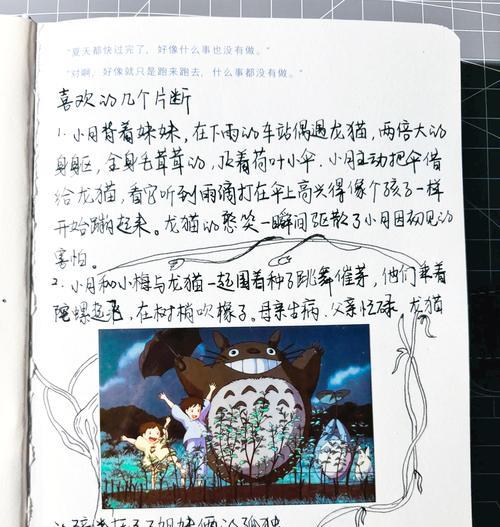 “夏天都快过完了，好像什么事也没有做。”
“对啊，好像就只是跑来跑去，什么事都没有做。”
喜欢的几个片断
1. 小月背着妹妹，在下雨的车站偶遇龙猫，两倍大的
身躯，全身毛茸茸的，顶着荷叶小伞，小月主动把伞借
给龙猫，看它听到雨滴打在伞上高兴得像个孩子一样
开始蹦起来。龙猫的憨笑一瞬间驱散了小月因初见的
害怕。
2. 小月和小梅与龙猫一起围着种子跳舞催芽，他们乘着
陀螺起飞，在树梢吹橡子。母亲生病，父亲忙碌，龙猫